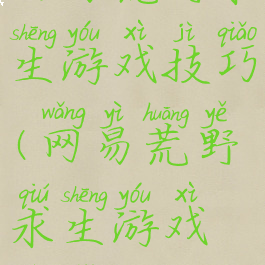 shēng yóu xì jì qiǎo
生游戏技巧
wǎng yì huāng yě
(网易荒野
qiú shēng yóu xì
求生游戏